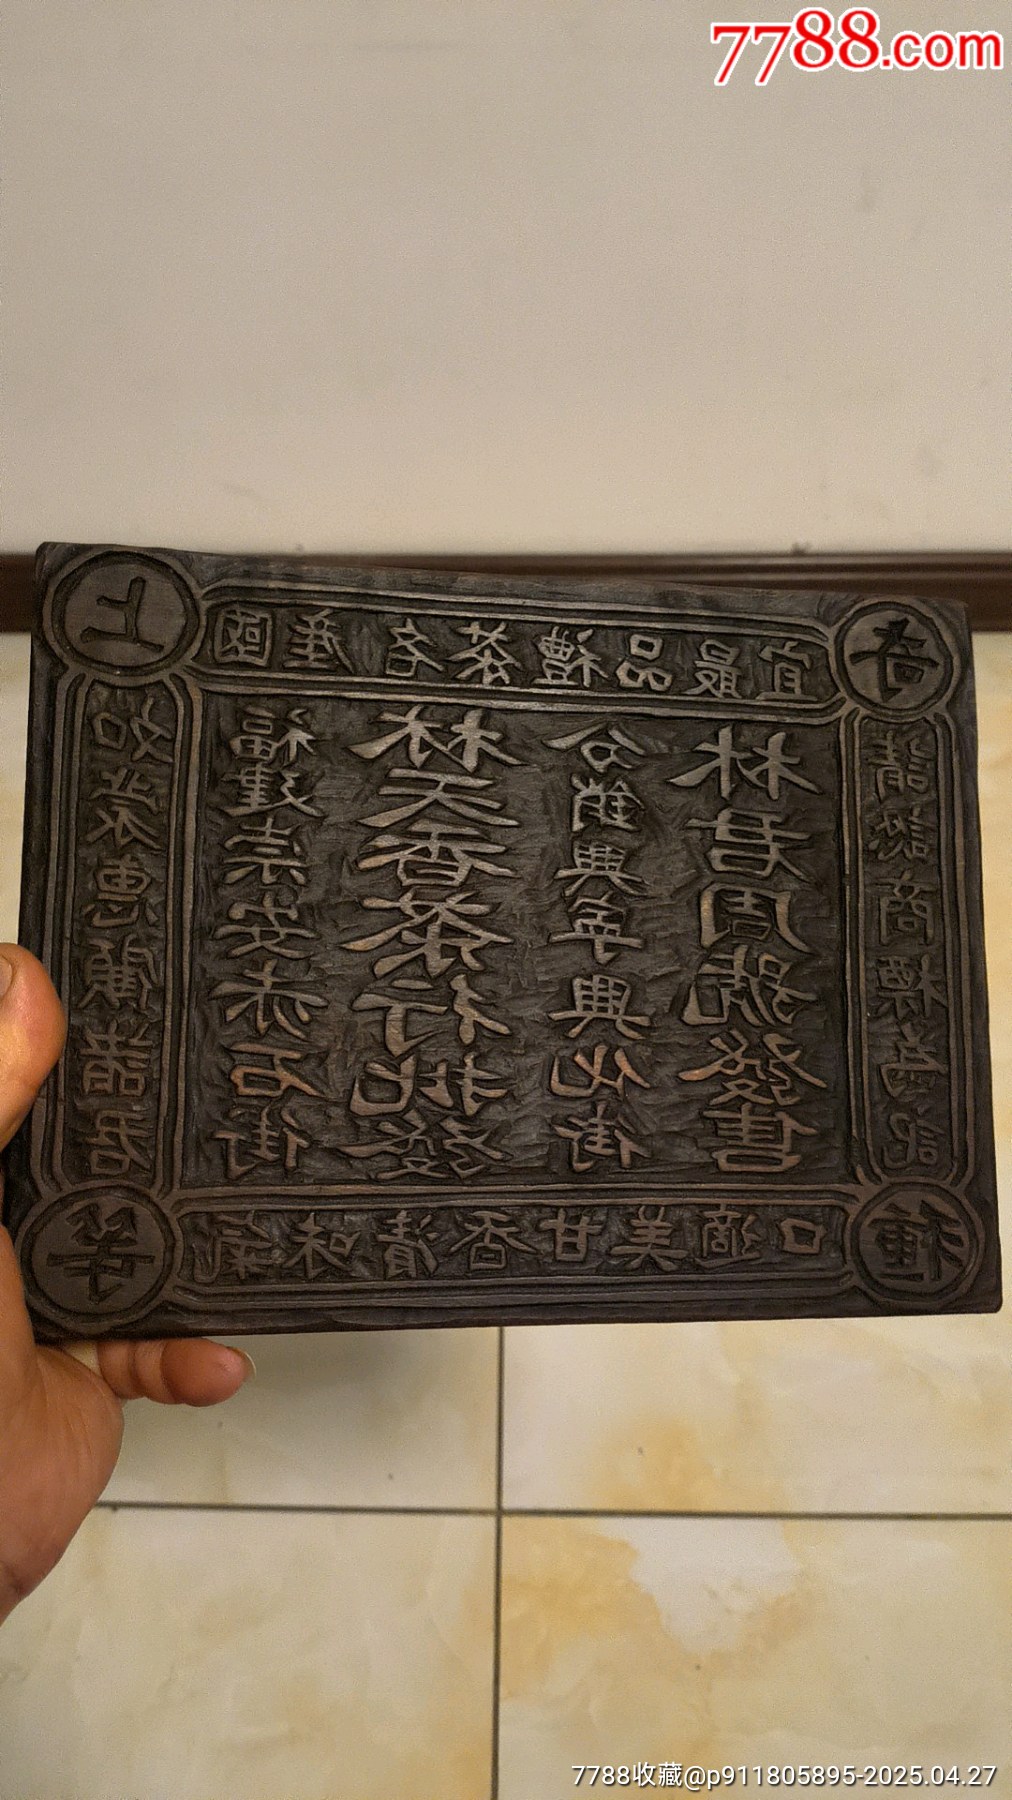 上
等
奇
種
國產名茶禮品最宜
各界惠顧諸君
福建崇安赤石街
林天香茶行批發
分銷興寧興街
林君周號發售
請認商標為記
氣味清香甘美適口
7788.com
7788收藏@p911805895-2025.04.27